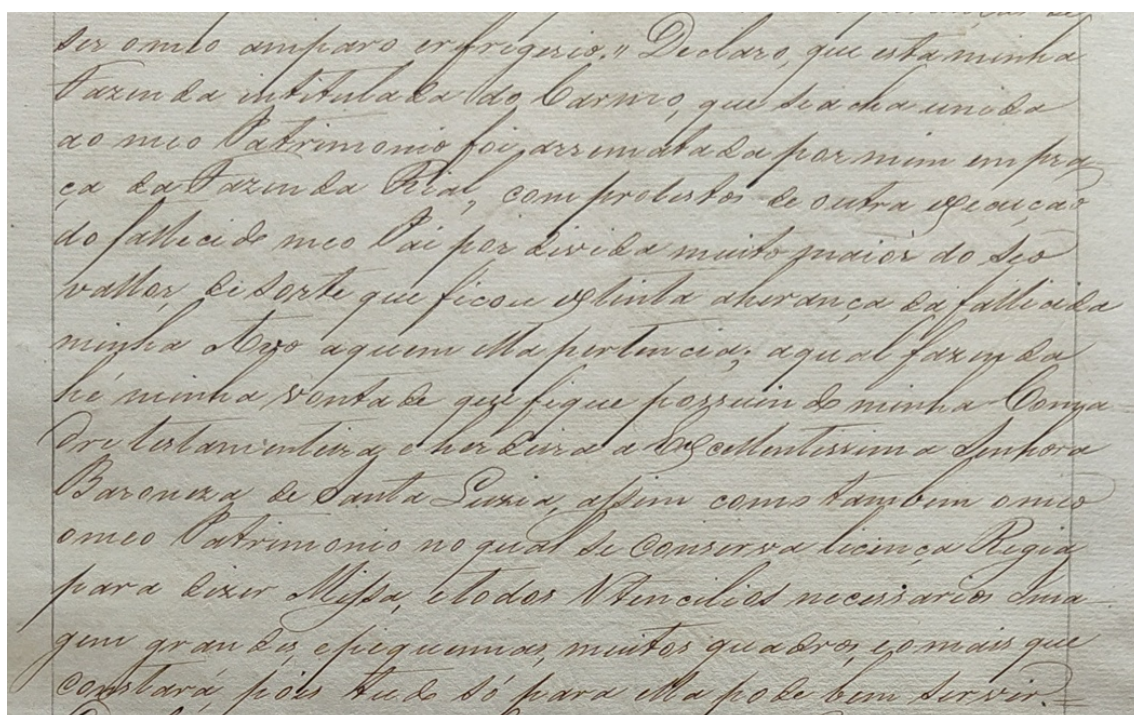 ser omeo amparo erefrigerio." Declaro, que esta minha
Fazenda intitulada do Carmo, que se acha unida
ao meo Patrimonio foi arrematada por mim em pra
ça da Fazenda Rial, com protestos de outra execução
do fallecido meo Pai por divida muito maior do seo
vallor, de sorte que ficou extinta aherança da fallecida
minha Avo aquem ella pertencia; aqual fazenda
hé minha vontade que fique possuindo minha Coma
dre testamenteira, e herdeira a Excellentissima Senhora
Baroneza de Santa Luzia, assim como tambem omeo
omeo Patrimonio no qual se conserva licença Regia
para dizer Missa, etodos Utencilios necessarios Ima-
gem grandes, epequennas, muitos quadros, eomais que
constará, pois tudo só para ella pode bem servir.=